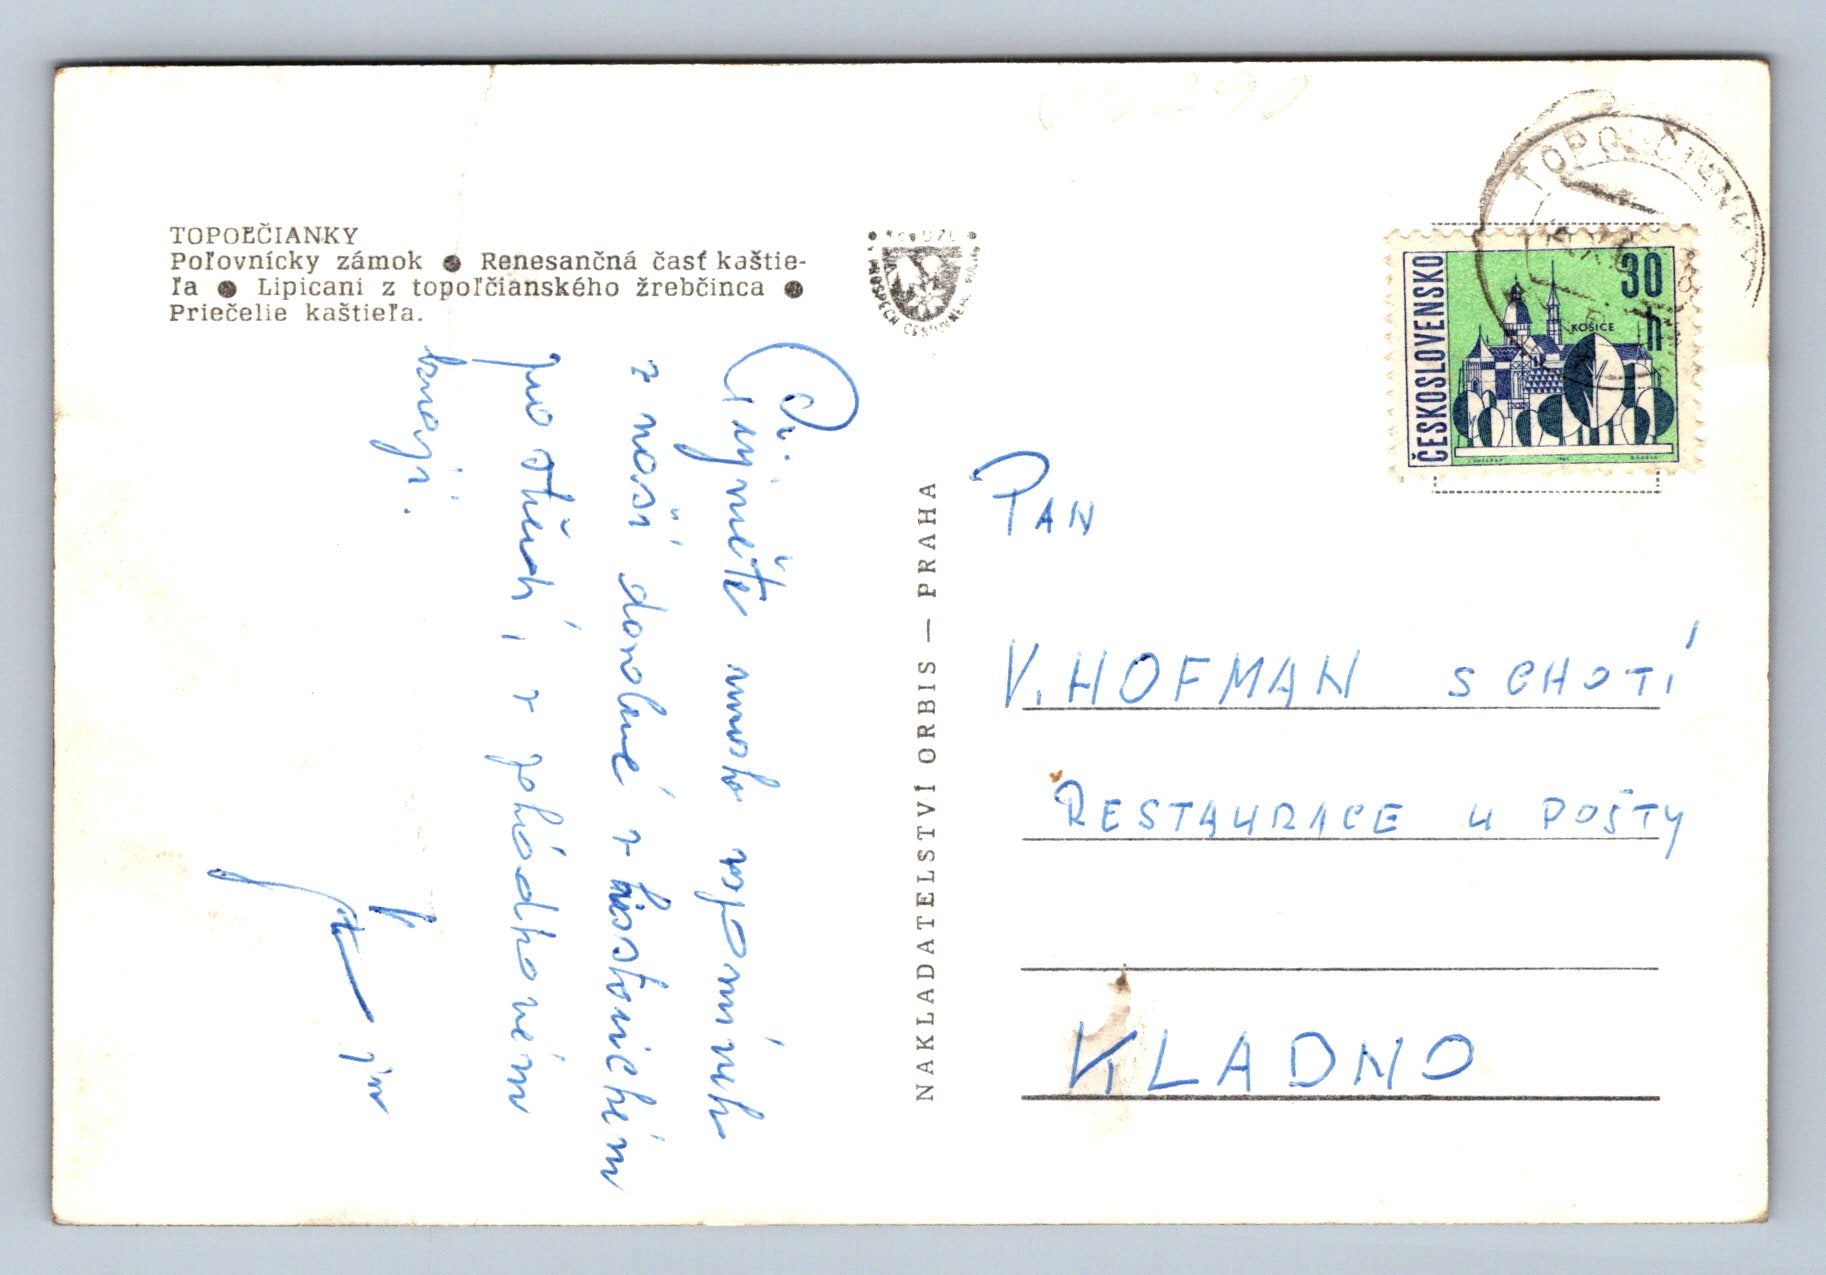 TOPOĽČIANKY
Poľovnícky zámok ● Renesančná časť kaštie-
ľa ● Lipicani z topoľčianského žrebčinca ●
Priečelie kaštieľa.
Přijměte mnoho vzpomínek
z naší dovolené v historickém
prostředí, v pohádkovém
kraji.
NAKLADATELSTVÍ ORBIS — PRAHA
TOPOĽČIANKY
ČESKOSLOVENSKO
30 h
KOŠICE
PAN
V. HOFMAN S CHOTÍ
RESTAURACE U POŠTY
KLADNO